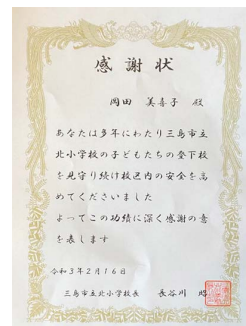 感謝状
岡田 美喜子 殿
あなたは多年にわたり三島市立
北小学校の子どもたちの登下校
を見守り続け校区内の安全を高
めてくださいました
よってこの功績に深く感謝の意
を表します
令和3年2月16日
三島市立北小学校長 長谷川 昭